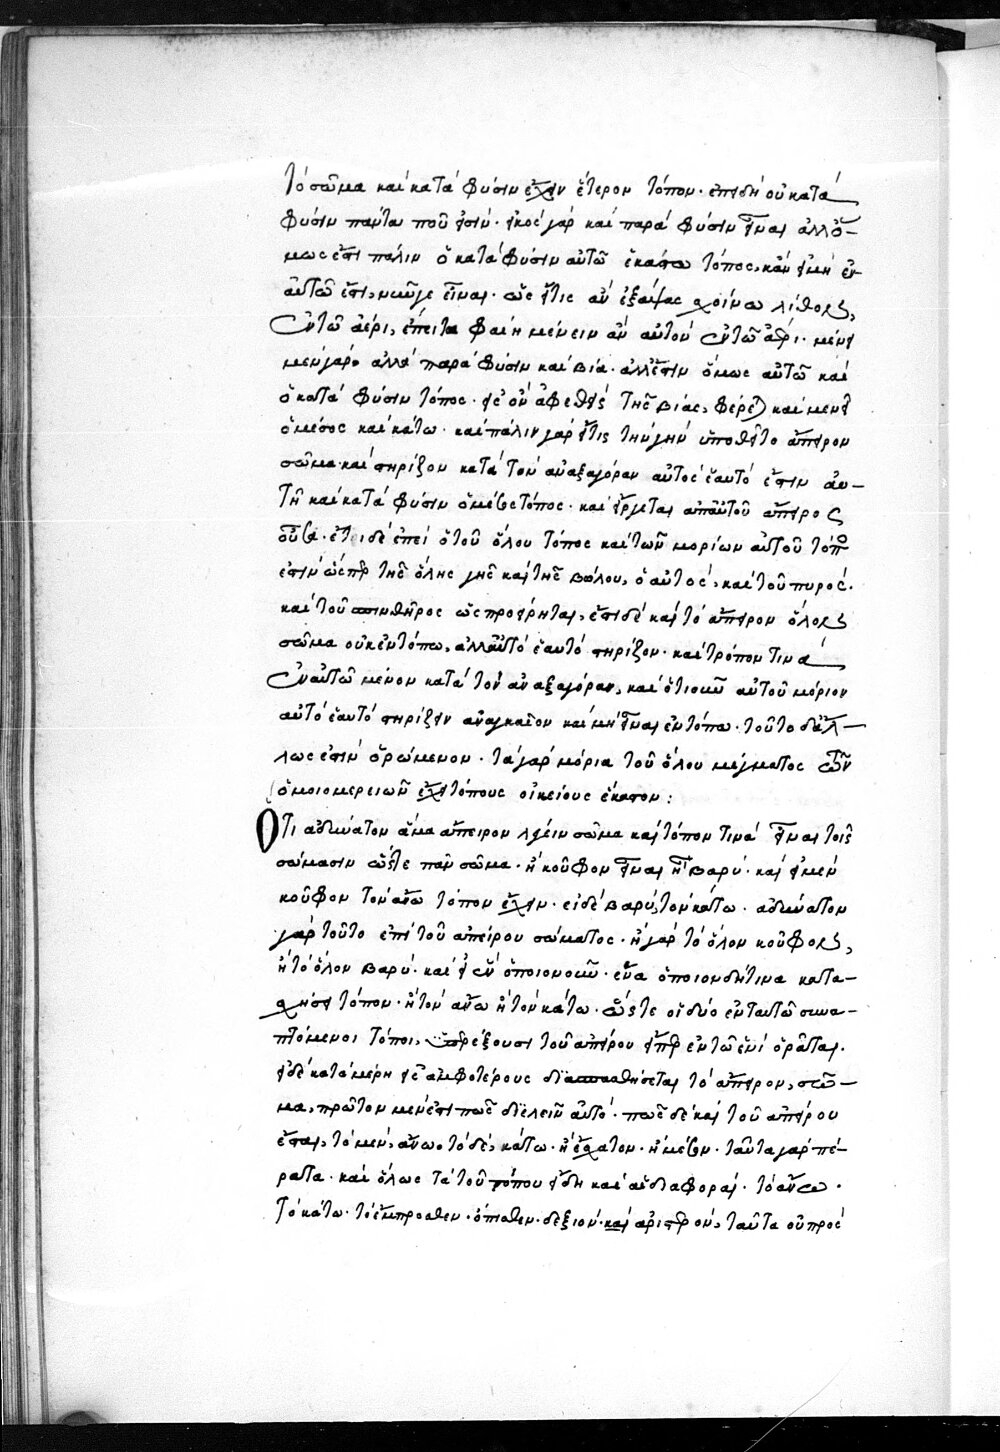 τὸ σῶμα καὶ κατὰ φύσιν ἔχειν ἕτερον τόπον· ἐπειδὴ οὐ κατὰ
φύσιν πάντα ποῦ εἰσίν· εἰκὸς γὰρ καὶ παρὰ φύσιν εἶναι ἀλλ' ὅ-
μως ἔστι πάλιν ὁ κατὰ φύσιν αὐτῶ ἑκάστω τόπος, κἂν εἰ μὴ ἐν
αὐτῶ ἔστι, εἶναι· ὡς εἴ τις ἂν ἐξάψας σχοίνω λίθον,
ἐν τῶ ἀέρι, ἔπειτα φαίη μένειν ἂν αὐτὸν ἐν τῶ ἀέρι· μένει
μὲν γὰρ ἀλλὰ παρὰ φύσιν καὶ βία· ἀλλ' ἔστιν ὅμως αὐτῶ καὶ
ὁ κατὰ φύσιν τόπος· εἰς ὃν ἀφεθεὶς τῆς βίας, φέρεται καὶ μένει
ὁ μέσος καὶ κάτω· καὶ πάλιν γὰρ εἴ τις τὴν γῆν ὑποθεῖτο ἄπειρον
σῶμα καὶ στηρίζον κατὰ τὸν ἀναξαγόραν αὐτὸς ἑαυτὸ ἔστιν αὐ-
τῆ καὶ κατὰ φύσιν ὁ μέσος τόπος· καὶ εἴργεται ἀπ' αὐτοῦ ἄπειρος
οὖσα· ἔτι δὲ ἐπεὶ ὁ τοῦ ὅλου τόπος καὶ τῶν μορίων αὐτοῦ τόπος
ἐστὶν ὥσπερ τῆς ὅλης γῆς καὶ τῆς βώλου, ὁ αὐτὸς, καὶ τοῦ πυρὸς·
καὶ τοῦ σπινθῆρος ὡς προείρηται, ἔστι δὲ καὶ τὸ ἄπειρον ὅλον
σῶμα οὐκ ἐν τόπω, ἀλλ' αὐτὸ ἑαυτὸ στηρίζον· καὶ τρόπον τινὰ
ἐν αὑτῶ μένον κατὰ τὸν ἀναξαγόραν, καὶ ὁτιοῦν αὐτοῦ μόριον
αὐτὸ ἑαυτὸ στηρίζειν ἀναγκαῖον καὶ μὴ εἶναι ἐν τόπω· τοῦτο δ' ἄλ-
λως ἐστὶν ὁρώμενον· τὰ γὰρ μόρια τοῦ ὅλου μίγματος τῶν
ὁμοιομερειῶν ἔχει τόπους οἰκείους ἕκαστον:
Ὅτι ἀδύνατον ἅμα ἄπειρον λέγειν σῶμα καὶ τόπον τινὰ εἶναι τοῖς
σώμασιν ὥστε πᾶν σῶμα· ἢ κοῦφον εἶναι ἢ βαρὺ· καὶ εἰ μὲν
κοῦφον τὸν ἄνω τόπον ἔχειν· εἰ δὲ βαρὺ, τὸν κάτω· ἀδύνατον
γὰρ τοῦτο ἐπὶ τοῦ ἀπείρου σώματος· ἢ γὰρ τὸ ὅλον κοῦφον,
ἢ τὸ ὅλον βαρὺ· καὶ ὁποιονοῦν· ἕνα ὁποιονδήτινα κατα-
σχήσει τόπον· ἢ τὸν ἄνω ἢ τὸν κάτω· ὥστε οἱ δύο ἐν ταυτῶ συνα-
πτόμενοι τόποι, ὑπερέξουσι τοῦ ἀπείρου εἴπερ ἐν τῶ ἑνὶ ὁρᾶται·
εἰ δὲ κατὰ μέρη εἰς ἀμφοτέρους διασπασθήσεται τὸ ἄπειρον, σῶ-
μα, πρῶτον μὲν ἔστι πῶς διελεῖν αὐτὸ· πῶς δὲ καὶ τοῦ ἀπείρου
ἔσται, τὸ μὲν, ἄνω· τὸ δὲ, κάτω· ἢ ἔσχατον· ἢ μέσον· ταῦτα γὰρ πέ-
ρατα· καὶ ὅλως τὰ τοῦ τόπου εἴδη καὶ αἱ διαφοραὶ· τὸ ἄνω·
τὸ κάτω· τὸ ἔμπροσθεν· ὄπισθεν· δεξιὸν· καὶ ἀριστερὸν, ταῦτα οὐ πρὸς